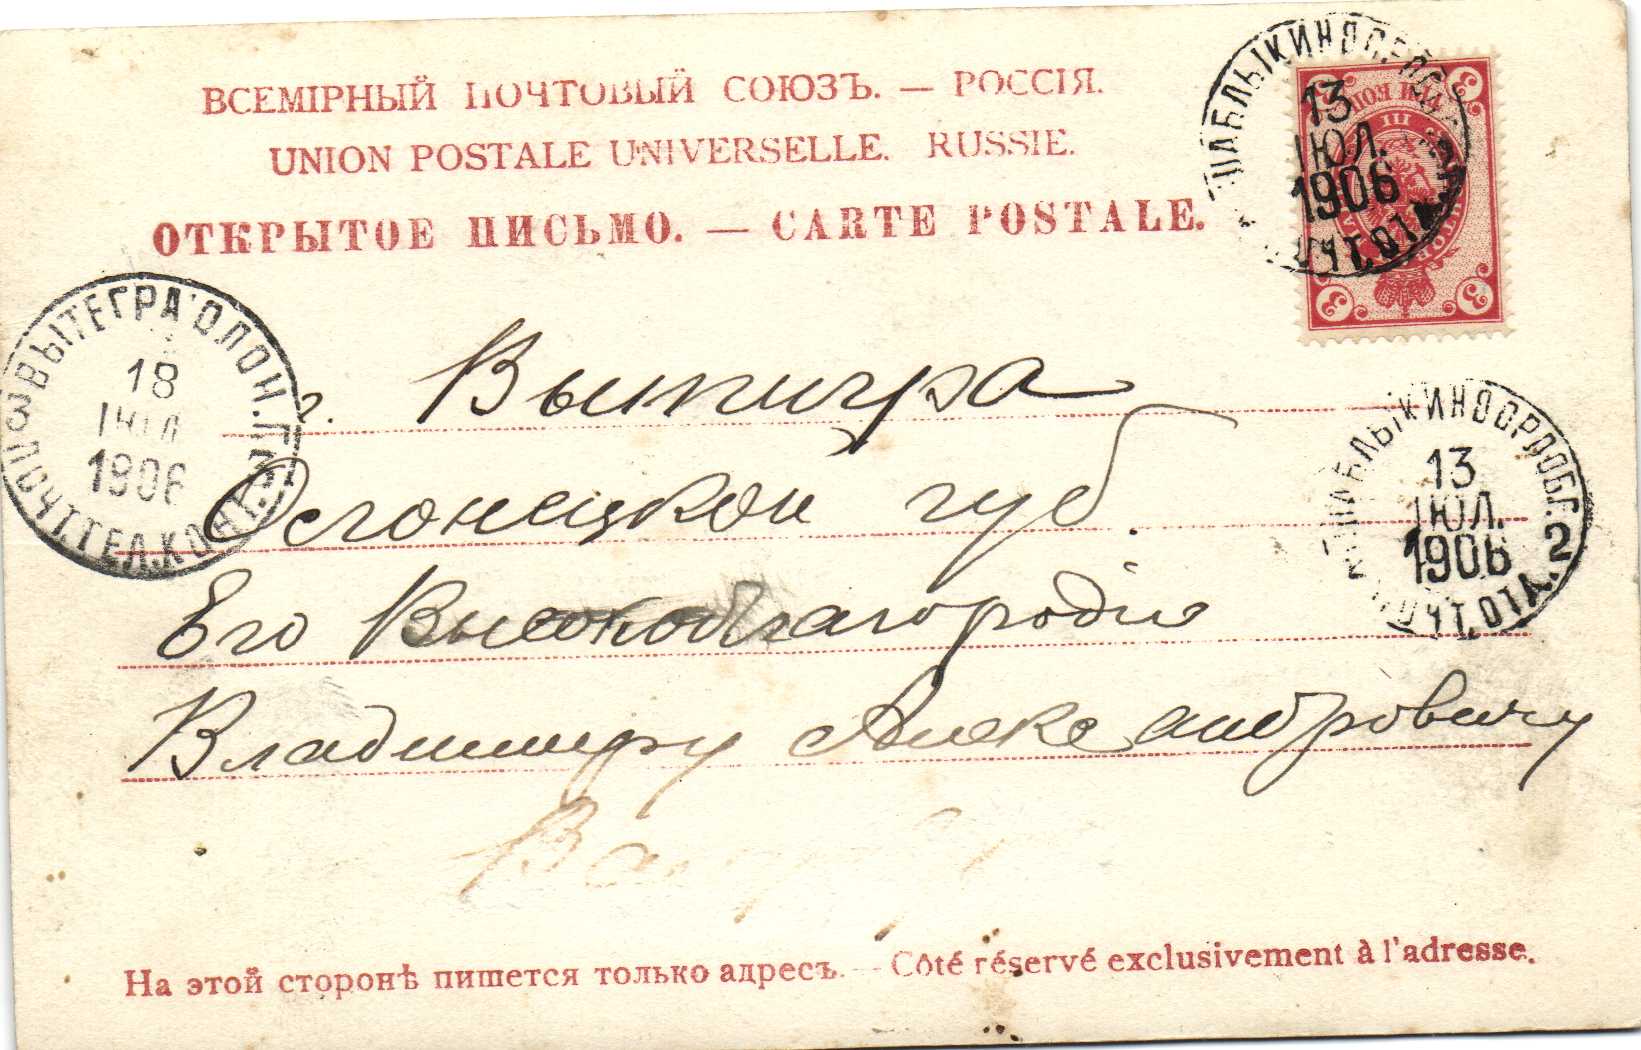 ВСЕМІРНЫЙ ПОЧТОВЫЙ СОЮЗЪ. — РОССІЯ.
UNION POSTALE UNIVERSELLE. RUSSIE.
ОТКРЫТОЕ ПИСЬМО. — CARTE POSTALE.
13
ІЮЛ.
1906
ПОЧТ. ОТД.
3
3
ВЫТЕГРА ОЛОН. Г.
18
ІЮЛ
1906
ПОЧТ. ТЕЛ. КОНТ.
3
3
ШАБЛЫКИНО ОРЛ
13
ІЮЛ.
1906
2
ПОЧТ. ОТД.
г. Вытегра
Олонецкой губ.
Его Высокоблагородію
Владимиру Александровичу
На этой сторонѣ пишется только адресъ. — Côté réservé exclusivement à l'adresse.